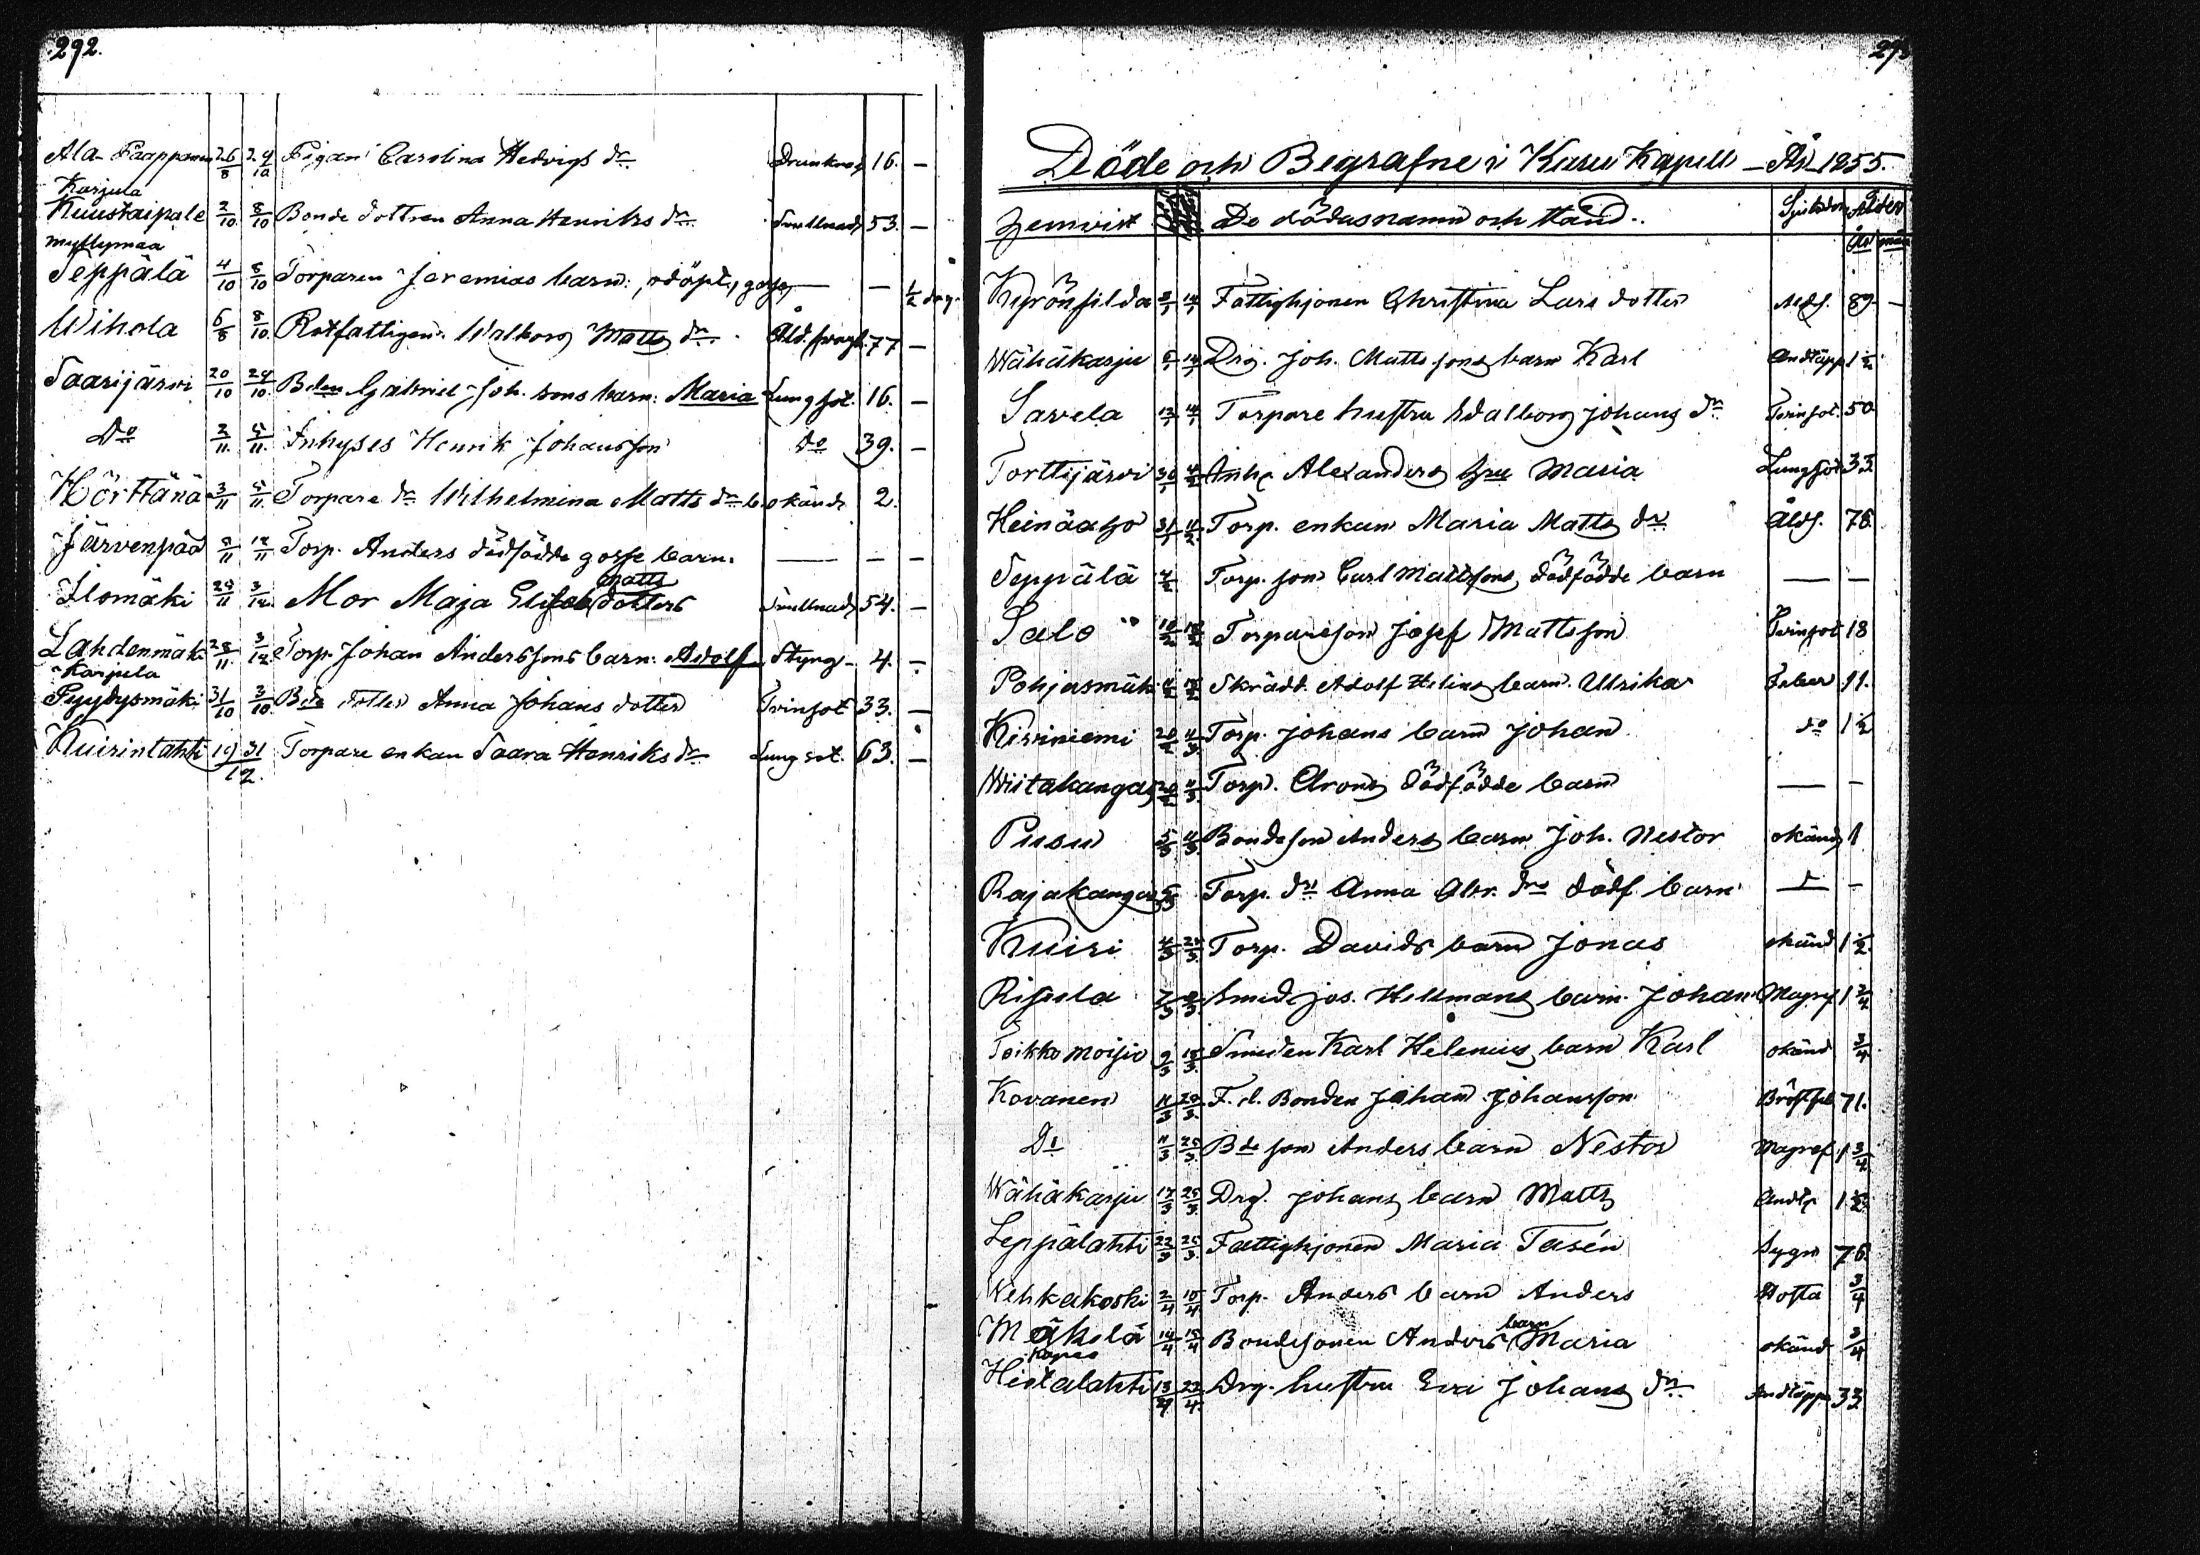 292.
Ala-Paappanen 26/8 24/10 Pigan Carolina Hedvigs dr Drunknog 16. —
Karjula
Kuustaipale 2/10 8/10 Bonde dottren Anna Henriks dr Svullnad 53. —
Myllymaa
Seppälä 4/10 8/10 Torparen Jeremias barn: odöpt, gosse — — 1/2 dag.
Wihola 6/8 8/10 Rotfattigen Walborg Matts dr Åld. 77 —
Saarijärvi 20/10 24/10 Bden Gabriel Joh. sons barn: Maria Lungsot. 16. —
Do 2/11 5/11 Inhyses Henrik Johansson do 39. —
Hörttänä 3/11 5/11 Torpare dr Wilhelmina Matts dr b. okänd 2.
Järvenpää 8/11 12/11 Torp. Anders dödfödde gosse barn. — — —
Ilomäki 24/11 3/12 Mor Maja Elisab Matts dotters Svullnad 54. —
Lahdenmäki 28/11 3/12 Torp. Johan Anderssons barn: Adolf Styng 4. —
Karjula
Pyydysmäki 31/10 3/10 Bde dotter Anna Johans dotter Tvinsot 33. —
Kuirinlahti 19 31/12 Torpare enkan Saara Henriks dr Lungsot. 63. —
293
Döde och Begrafne i Kapell — År 1855.
Hemvist De dödas namn och stånd. Sjukdom Ålder
År mån
Kyrönsilda 8/1 14/1 Fattighjonen Christina Lars dotter Åldf. 89 —
Wähäkarju 8/1 14/1 Drg. Joh. Mattssons barn Karl Andtäppa 1 1/2
Sarvela 13/1 Torpare hustru Walborg Johans dr Tvinsot. 50
Torttijärvi 30/1 4/2 Inh. Alexanders hru Maria Lungsot 33
Heinäaho 31/1 4/2 Torp. enkan Maria Matts dr Åldf. 76
Seppälä 4/2 Torp. son Carl Mattssons dödfödde barn — —
Salo 10/2 18/2 Torpareson Josef Mattsson Tvinsot 18
Pohjasmäki Skrädd. Adolf Helins barn Ulrika Feber 11.
Kiviniemi 20/2 4/3 Torp. Johans barn Johan do 1 1/2
Wiitakangas 20/2 4/3 Torp. Arons dödfödde barn — —
Pusu 5/3 11/3 Bondeson Anders barn Joh. Nestor okänd 1
Rajakangas 5/3 Torp. dr Anna Abr. drs dödf barn — —
Kuiri 4/3 25/3 Torp. Davids barn Jonas okänd 1 1/2
Risula 7/3 Smed Jos. Hellmans barn Johan Magref 1 3/4
Toikko moisio 9/3 18/3 Smeden Karl Helenius barn Karl okänd 3/4
Kovanen 11/3 20/3 F. d. Bonden Johan Johansson Bröstsj 71.
Do 11/3 20/3 Bde son Anders barn Nestor Magref 1 3/4
Wähäkarju 17/3 25/3 Drg. Johans barn Matts Andtp 1 1/2
Leppälahti 22/3 25/3 Fattighjonen Maria Tasén Sygn 76.
Wehkakoski 2/4 10/4 Torp. Anders barn Anders Hosta 3/4
Mäkelä 14/4 15/4 Bondesonen Anders barn Maria okänd 3/4
Hietalahti 13/4 23/4 Drg. hustru Eva Johans dr Andtäppa 33